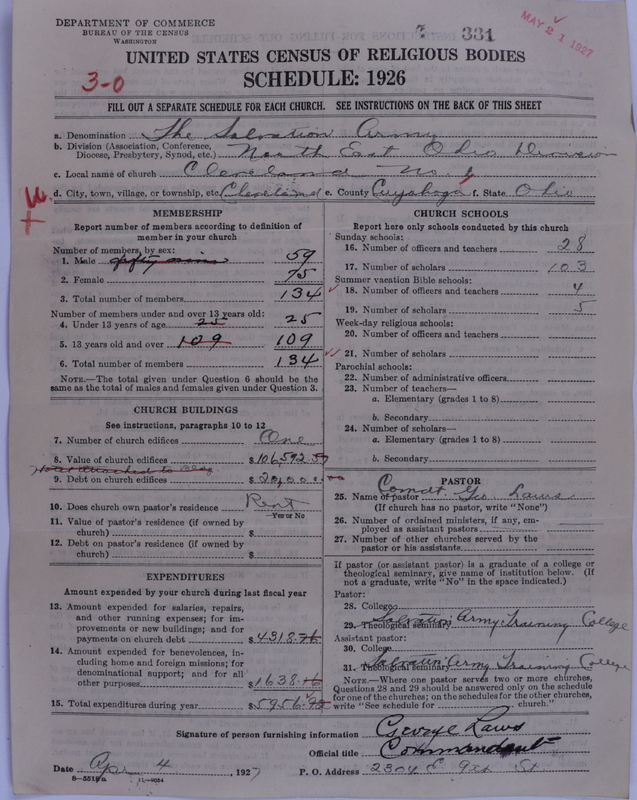 DEPARTMENT OF COMMERCE
BUREAU OF THE CENSUS
WASHINGTON
331
MAY 21 1927
UNITED STATES CENSUS OF RELIGIOUS BODIES
3-0
SCHEDULE: 1926
FILL OUT A SEPARATE SCHEDULE FOR EACH CHURCH. SEE INSTRUCTIONS ON THE BACK OF THIS SHEET
a. Denomination The Salvation Army
b. Division (Association, Conference, Diocese, Presbytery, Synod, etc.) North East Ohio Division
c. Local name of church Cleveland No. 1
d. City, town, village, or township, etc. Cleveland e. County Cuyahoga f. State Ohio
MEMBERSHIP
Report number of members according to definition of
member in your church
Number of members, by sex:
1. Male fifty nine 59
2. Female 75
3. Total number of members 134
Number of members under and over 13 years old:
4. Under 13 years of age 25 25
5. 13 years old and over 109 109
6. Total number of members 134
NOTE.—The total given under Question 6 should be
same as the total of males and females given under Question 3.
CHURCH BUILDINGS
See instructions, paragraphs 10 to 12
7. Number of church edifices One
8. Value of church edifices $106,592.50
9. Debt on church edifices $20,000.00
10. Does church own pastor's residence Rent
Yes or No
11. Value of pastor's residence (if owned by
church) $
12. Debt on pastor's residence (if owned by
church) $
EXPENDITURES
Amount expended by your church during last fiscal year
13. Amount expended for salaries, repairs,
and other running expenses; for im-
provements or new buildings; and for
payments on church debt $4318.76
14. Amount expended for benevolences, in-
cluding home and foreign missions; for
denominational support; and for all
other purposes $1638.16
15. Total expenditures during year $5956.92
CHURCH SCHOOLS
Report here only schools conducted by this church
Sunday schools:
16. Number of officers and teachers 28
17. Number of scholars 103
Summer vacation Bible schools:
18. Number of officers and teachers 4
19. Number of scholars 5
Week-day religious schools:
20. Number of officers and teachers
21. Number of scholars
Parochial schools:
22. Number of administrative officers
23. Number of teachers—
a. Elementary (grades 1 to 8)
b. Secondary
24. Number of scholars—
a. Elementary (grades 1 to 8)
b. Secondary
PASTOR
25. Name of pastor Comdt. Geo Laws
(If church has no pastor, write "None")
26. Number of ordained ministers, if any, em-
ployed as assistant pastors
27. Number of other churches served by the
pastor or his assistants
If pastor (or assistant pastor) is a graduate of a college or
theological seminary, give name of institution below. (If
not a graduate, write "No" in the space indicated.)
Pastor:
28. College
29. Theological seminary Salvation Army Training College
Assistant pastor:
30. College
31. Theological seminary Salvation Army Training College
NOTE.—Where one pastor serves two or more churches,
Questions 28 and 29 should be answered only on the schedule
for one of the churches; on the schedules for the other churches,
write "See schedule for church."
Signature of person furnishing information George Laws
Official title Commandant
Date Apr 4 1927 P. O. Address 2304 E 9th St
8—5519a 11—9554